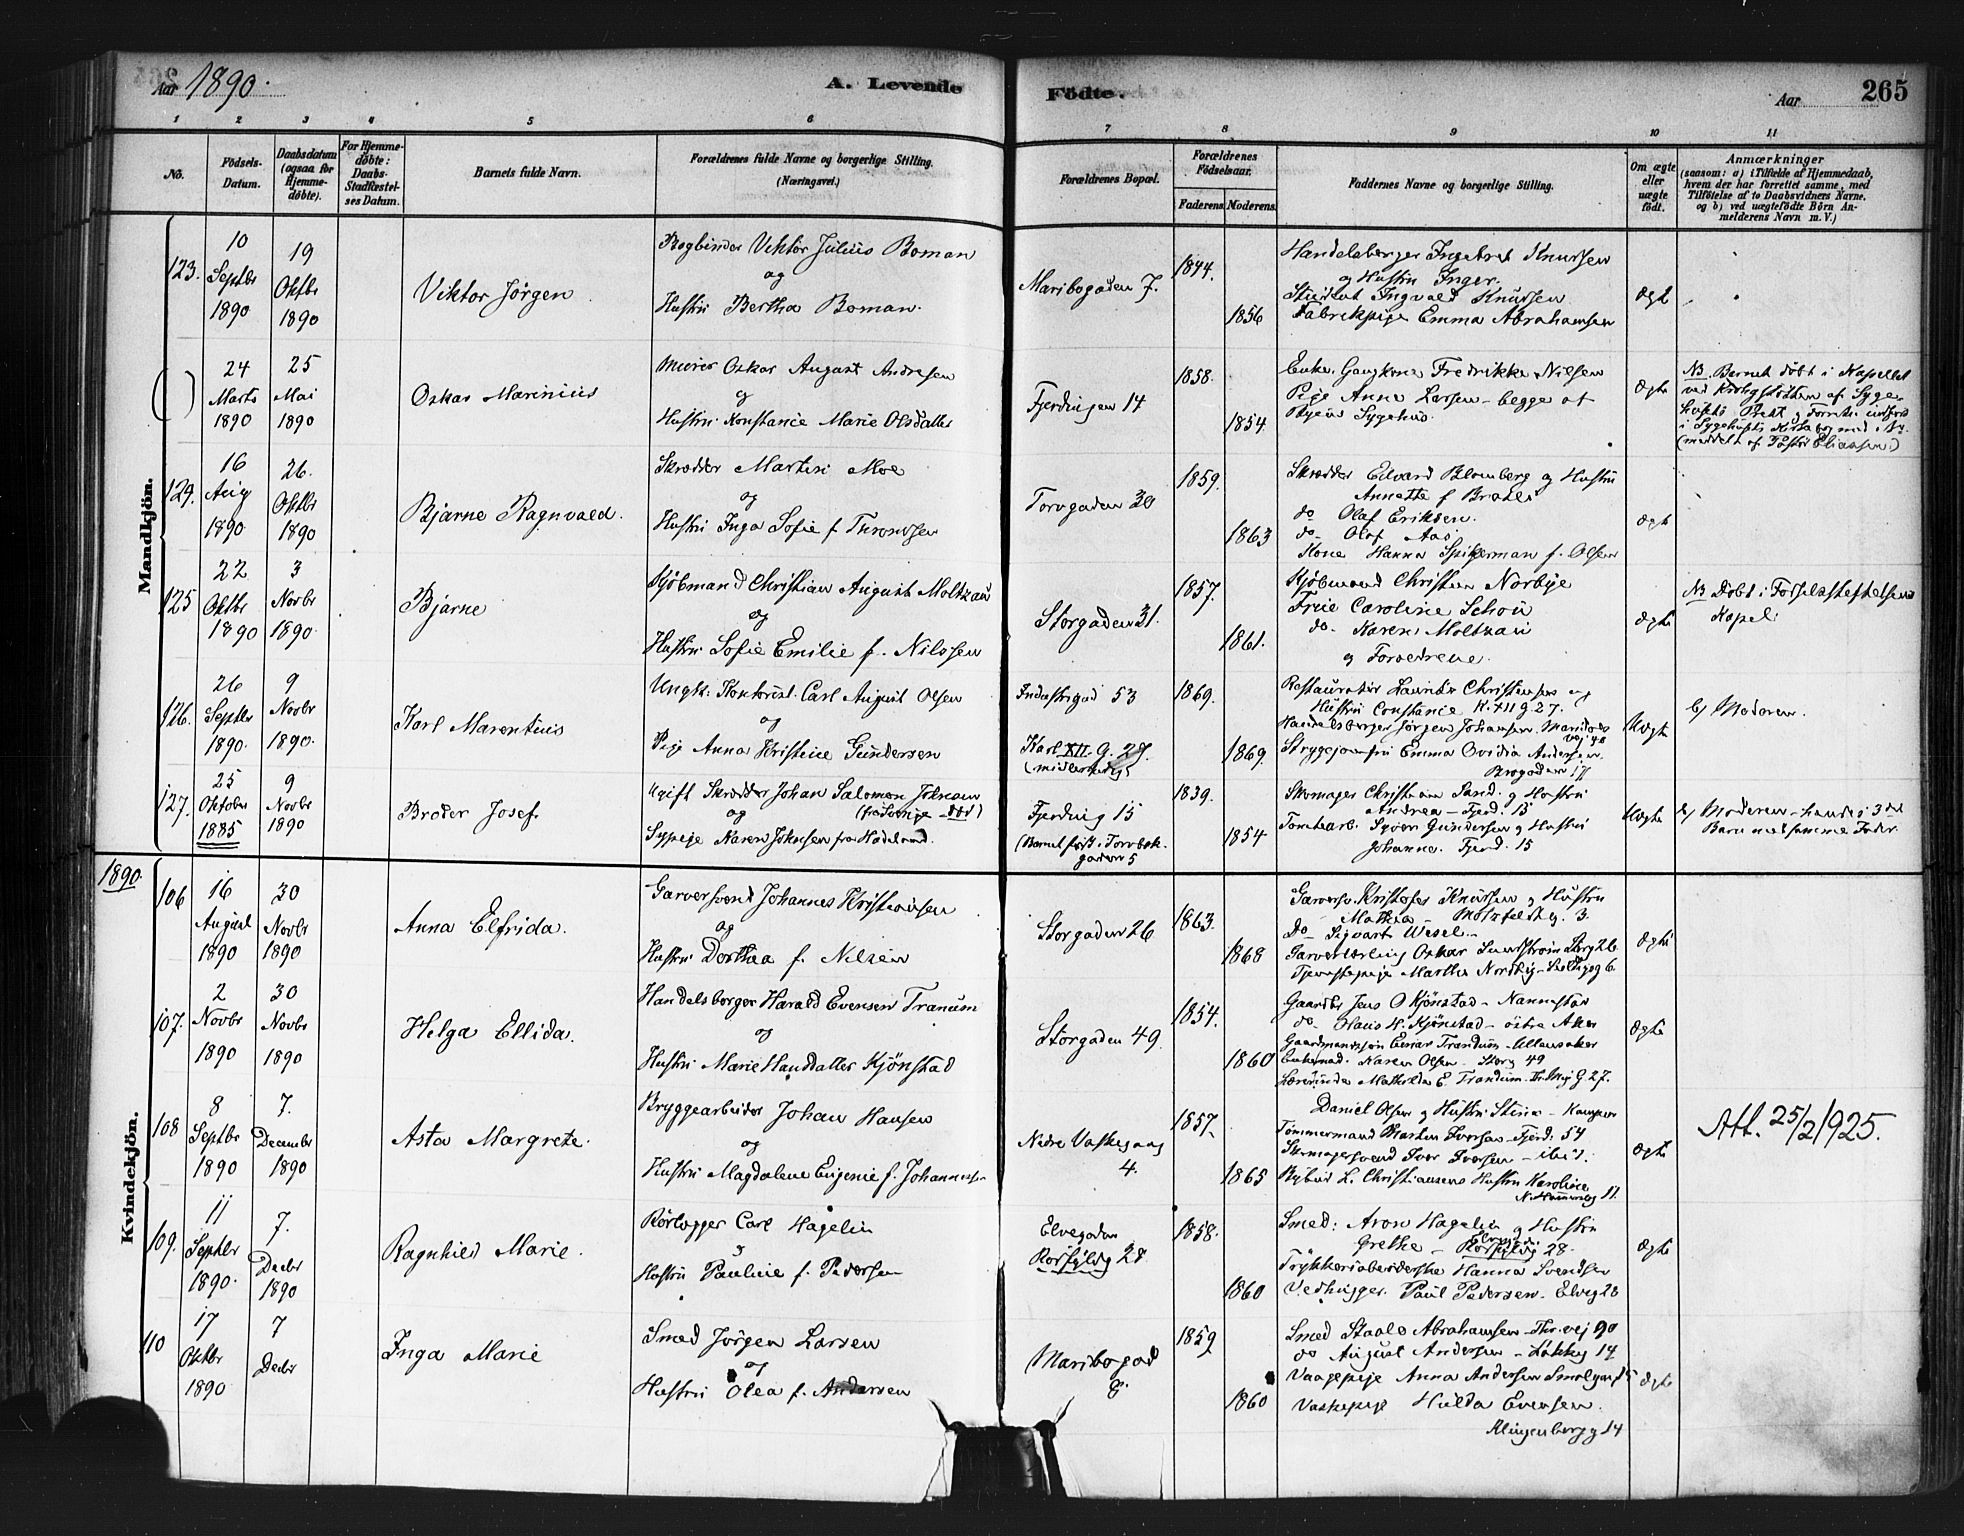 Aar 1890.
A. Levende Födte.
Aar 265
1 2 3 4 5 6 7 8 9 10 11
No.
Födsels-Datum.
Daabsdatum (ogsaa for Hjemme-döbte).
For Hjemme-döbte: Daabs-Stadfæstel-ses Datum.
Barnets fulde Navn.
Forældrenes fulde Navne og borgerlige Stilling. (Næringsvei.)
Forældrenes Bopæl.
Forældrenes Födselsaar.
Faderens. Moderens.
Faddernes Navne og borgerlige Stilling.
Om ægte eller uægte födt.
Anmærkninger
(saasom: a) i Tilfælde af Hjemmedaab,
hvem der har forrettet samme, med
Tilföielse af to Daabsvidners Navne,
og b) ved uægtefödte Börn An-
melderens Navn m. V.)
Mandkjön.
123.
10 Septbr 1890
19 Oktbr 1890
Viktor Jörgen
Bogbinder Viktor Julius Boman
og
Hustru Bertha Boman.
Maribogaden 7.
1844.
1856
Handelsborger Ingebret Knudsen
og Hustru Inger.
Student Ingvald Knudsen
Fabrikpige Emma Abrahamsen
ægte
( )
24 Marts 1890
25 Mai 1890
Oskar Marinius
Murer Oskar August Andresen
og
Hustru Konstance Marie Olsdatter
Fjerdingen 14
1858.
1854.
Enke Gangkone Fredrikke Nilsen
Pige Anna Larsen - begge at
Byens Sygehus.
ægte
NB. Barnet döbt i Kapellet
ved Krohgstötten af Syge-
husets Prest
(meddelt af Eliassen)
124.
16 Aug 1890
26. Oktbr 1890
Bjarne Ragnvald.
Skrædder Martin Moe
og
Hustru Inga Sofie f. Thronsen
Torvgaden 30
1859.
1863
Skrædder Edvard Blomberg og Hustru
Annette f.
do Olaf Eriksen.
do Olaf Aas
Kone Hanna Spikerman f. Olsen
ægte
125
22 Oktbr 1890
3 Novbr 1890.
Bjarne
Kjöbmand Christian August Moltzau
og
Hustru Sofie Emilie f. Nilssen
Storgaden 31.
1857.
1861.
Kjöbmand Christen Norbye
Frue Caroline Schou
do. Karen Moltzau
og Forældrene.
ægte
NB Döbt i Födselsstiftelsens
Kapel
126.
26 Septbr 1890.
9 Novbr 1890.
Karl Marentius
Ungk. Kontorist Carl August Olsen
og
Pige Anna Kristine Gundersen
Industrigad 53
Karl XII. G. 27.
(midlertidig)
1869.
1869.
Restauratör Lauritz Christensen og
Hustru Constance K. XII g 27.
Handelsborger Jörgen Johansen. Maridals
vei 40
Strygejomfru Emma Ovidia Andersen.
Brogaden 17
Uægte
b) Moderen.
127.
25 Oktober 1885
9 Novbr 1890
Broder Josef.
Ugift Skrædder Johan Salomon Johnson
og (fra Sverige - död)
Sypige Karen Johnsen fra Hadeland.
Fjerding 15
(Barnet födt i Torvbak-
gaden 5
1839.
1854
Skomager Christian Sand. og Hustru
Andrea - Fjerd. 15
Tomtearb. Syver Gundersen og Hustru
Johanne. Fjerd. 15
Uægte
b) Moderen - hendes 3die
Barn med samme Fader.
1890.
Kvindekjön.
106
16 August 1890
30 Novbr 1890
Anna Elfrida.
Garversvend Johannes Kristiansen
og
Hustru Dorthea f. Nilsen
Storgaden 26
1863.
1868
Garversv. Kristofer Knudsen og Hustru
Mathea - Motzfeldtg. 3.
Do - Sigvart Wesel.
Garverlærling Oskar Sundström Storg 26
Tjenestepige Martha Nordby 6.
ægte
107.
2 Novbr 1890
30 Novbr 1890
Helga Ellida.
Handelsborger Harald Evensen Tranum
og
Hustru Marie Hansdatter Kjönstad
Storgaden 49
1854.
1860
Gaardbr Jens O Kjönstad - Nannestad
do - Hans H. Kjönstad - östre Aker
Gaardmandssön Einar Trandum - Ullensaker
Enkemad. Karen Olsen - Storg 49
Lærerinde Mathilde E. Trandum G 27.
ægte
108
8 Septbr 1890
7. December 1890
Asta Margrete.
Bryggearbeider Johan Hansen
og
Hustru Magdalene Eugenie f. Johannessen
Nedre Vaskegang
4.
1857.
1865
Daniel Olsen og Hustru Stina - Kampen
Tömmermand Morten Iversen - Fjerd. 54
Skomagersvend Iver Iversen - ibid.
Bybud L. Christiansens Hustru Karoline
N. Hammersbg 11.
ægte
Att. 25/2 1925.
109.
11 Septbr 1890.
7. Decbr 1890
Ragnhild Marie.
Rörlægger Carl Hagelin
og
Hustru Pauline f. Pedersen
Elvegaden
28
1858.
1860
Smed: Aron Hagelin og Hustru
Grethe - Elveg 28.
Trykkeriarbeiderske Hanna Svendsen
Vedhugger Paul Pedersen - Elveg 28
ægte
110
17 Oktbr 1890
7 Decbr
Inga Marie
Smed Jörgen Larsen
og
Hustru Olea f. Andersen
Maribogad
8.
1859
1860
Smed Staale Abrahamsen - Thr. vej 90
do August Andersen - Lökkeg 14
Vaagepige Anna Andersen Smalgang 15
Vaskepige Hulda Evensen.
Klingenberg g 14
ægte